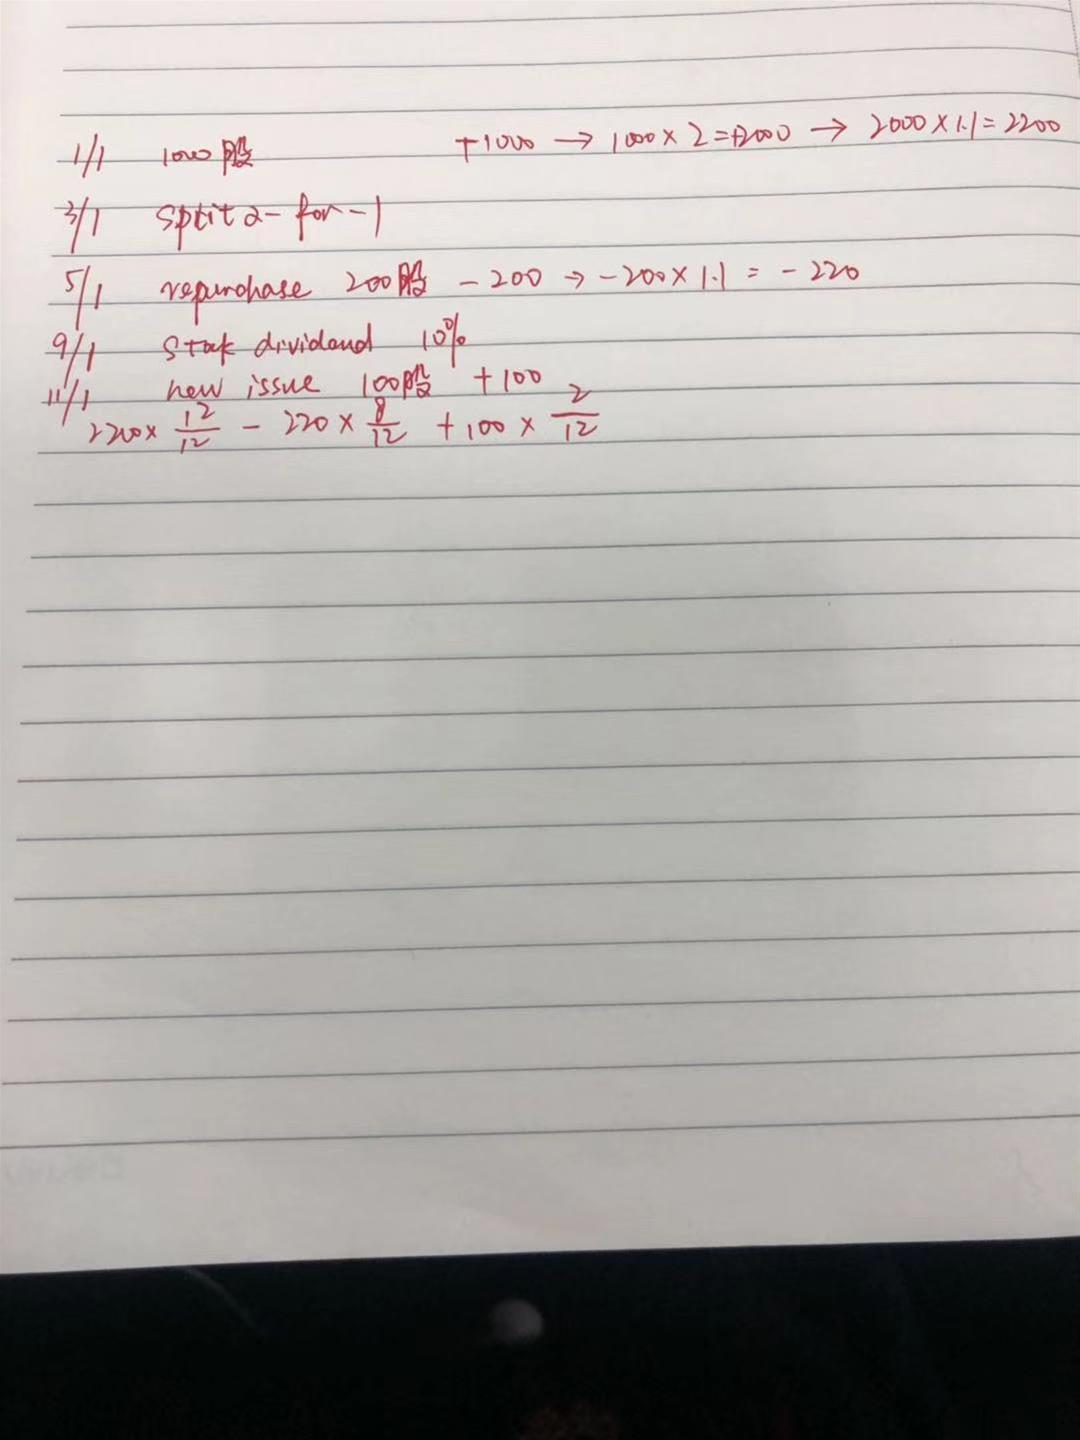 1/1 1000股 +1000 → 1000 × 2 = +2000 → 2000 × 1.1 = 2200
3/1 split 2-for-1
5/1 repurchase 200股 - 200 → - 200 × 1.1 = - 220
9/1 stock dividend 10%
11/1 new issue 100股 + 100
2200 × 12/12 - 220 × 8/12 + 100 × 2/12